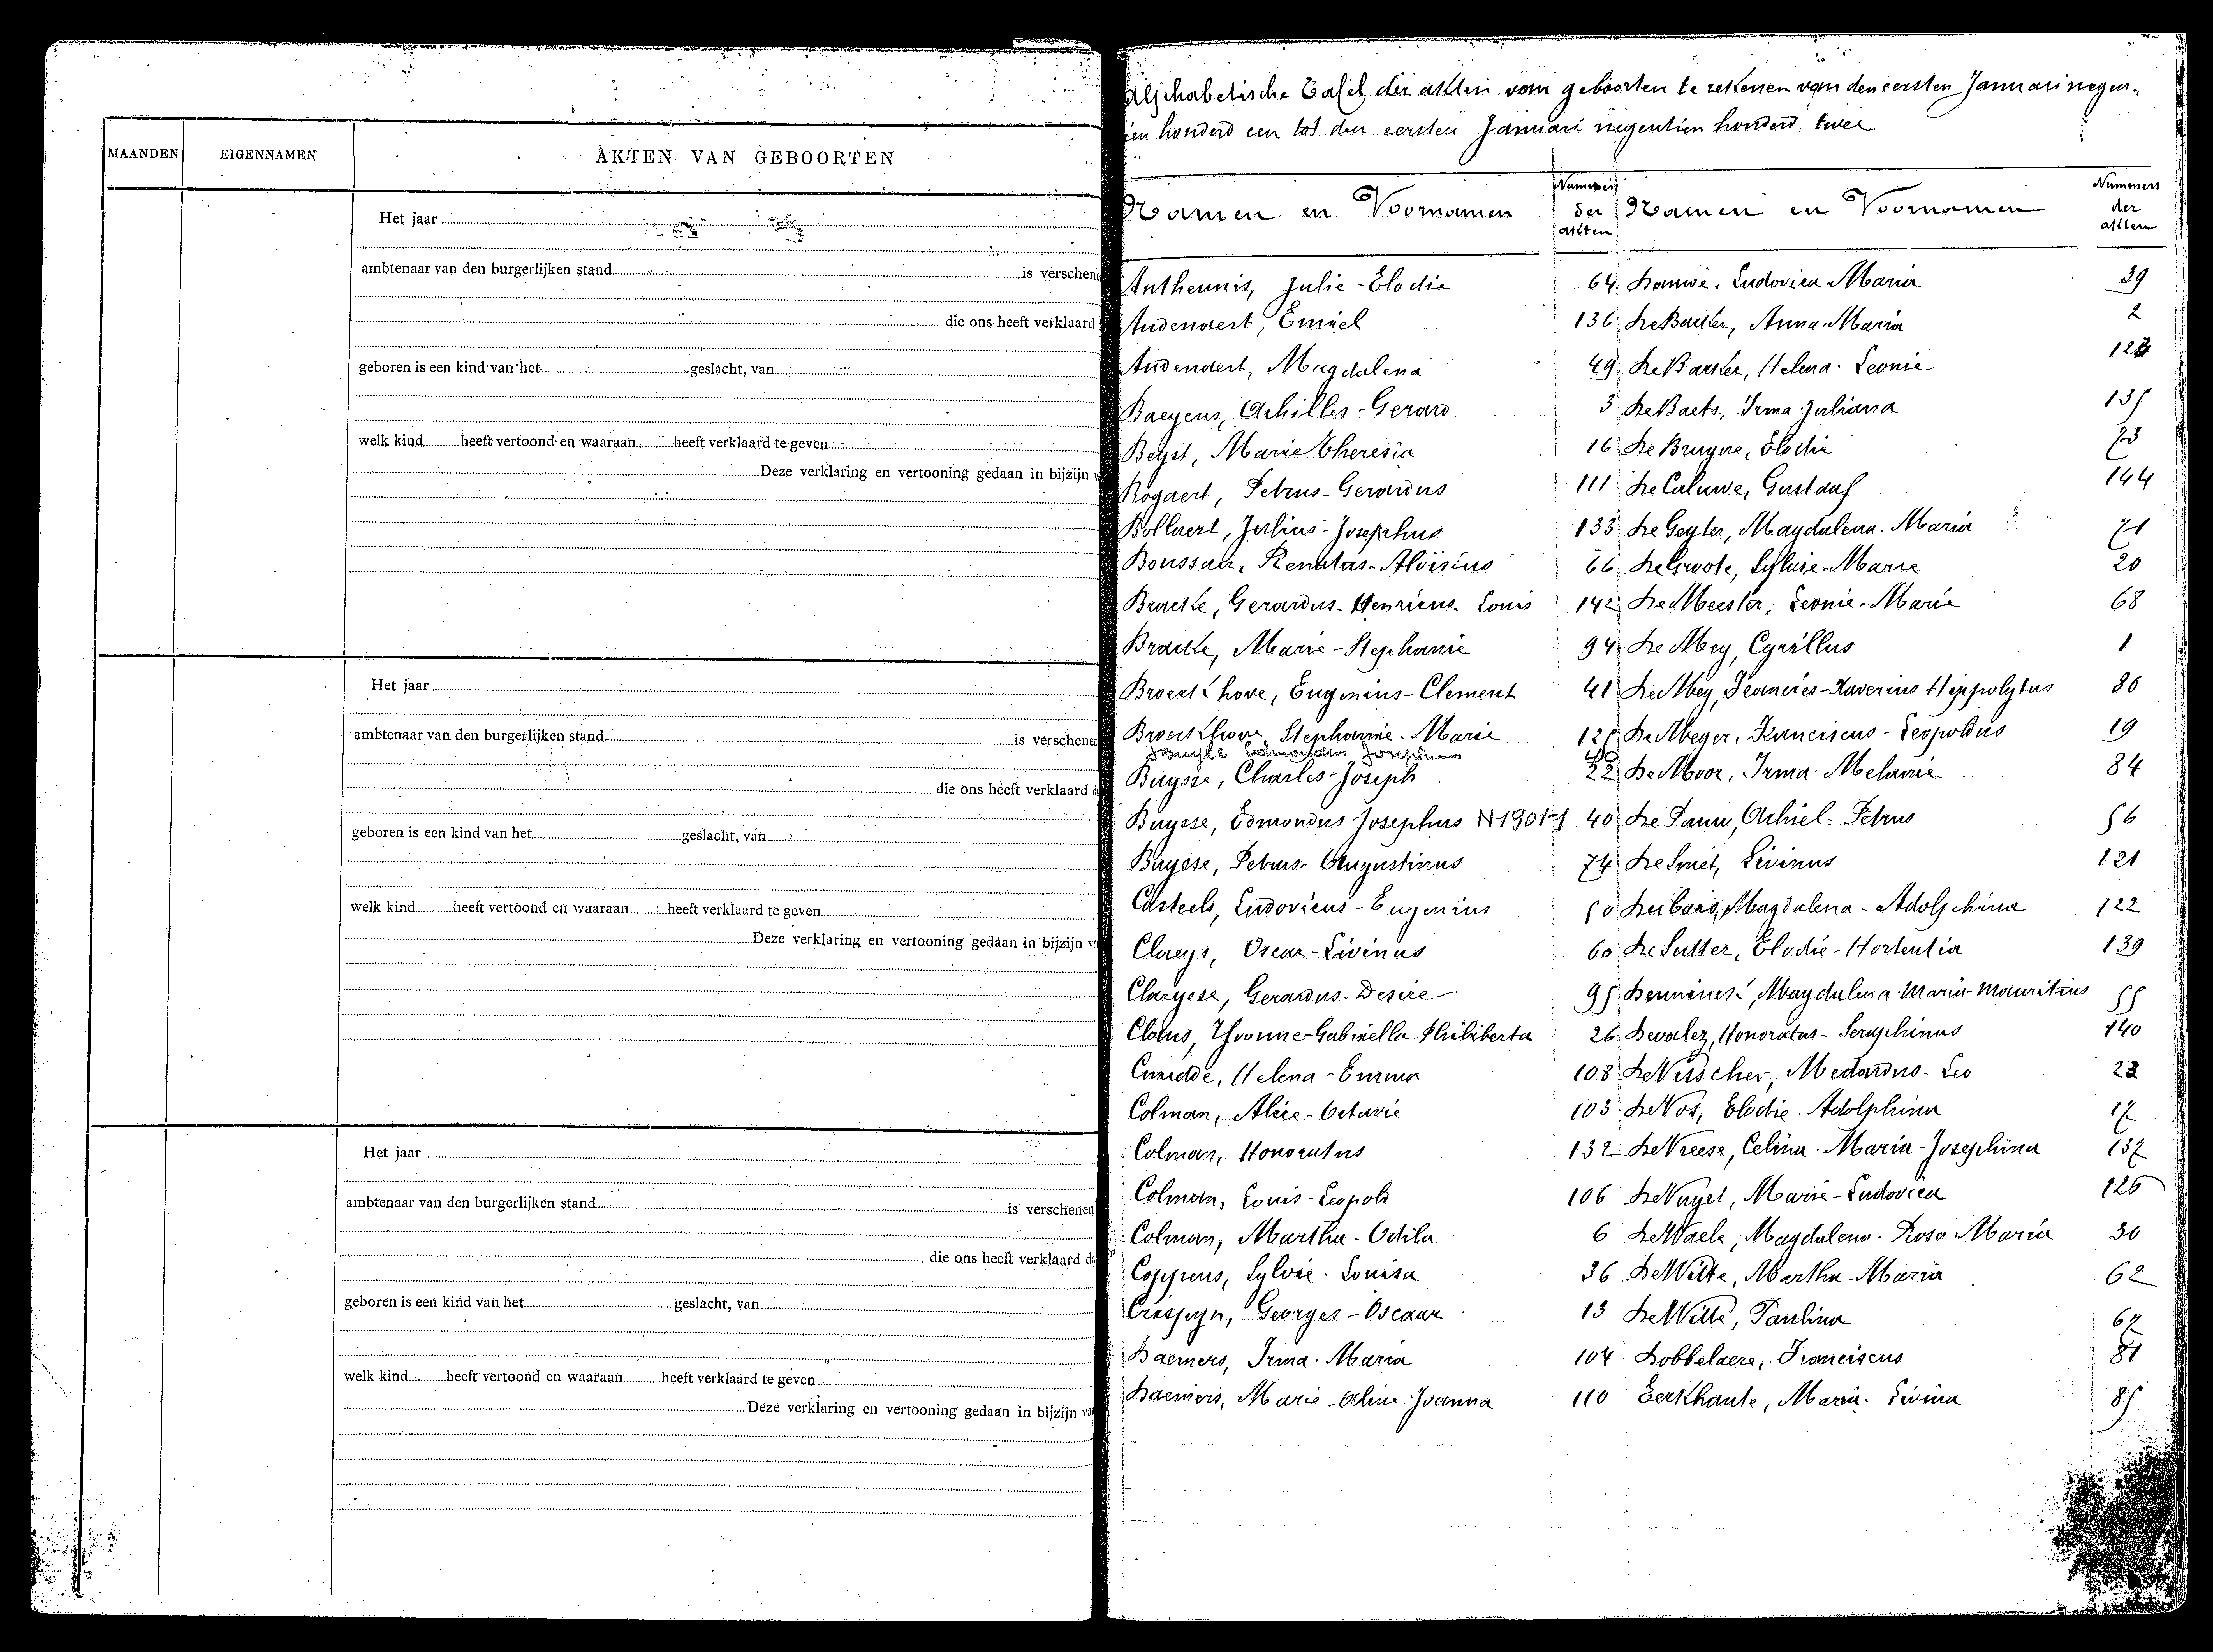 MAANDEN EIGENNAMEN AKTEN VAN GEBOORTEN
Het jaar
ambtenaar van den burgerlijken stand is verschenen
die ons heeft verklaard
geboren is een kind van het geslacht, van
welk kind heeft vertoond en waaraan heeft verklaard te geven
Deze verklaring en vertooning gedaan in bijzijn
Het jaar
ambtenaar van den burgerlijken stand is verschenen
die ons heeft verklaard
geboren is een kind van het geslacht, van
welk kind heeft vertoond en waaraan heeft verklaard te geven
Deze verklaring en vertooning gedaan in bijzijn
Het jaar
ambtenaar van den burgerlijken stand is verschenen
die ons heeft verklaard
geboren is een kind van het geslacht, van
welk kind heeft vertoond en waaraan heeft verklaard te geven
Deze verklaring en vertooning gedaan in bijzijn
Alphabetische Tafel der akten van geboorten te van den eersten Januari negen-
tien honderd een tot den eersten Januari negentien honderd twee
Namen en Voornamen Nummers der akten
Antheunis, Julie-Elodie 64
Audenaert, Emiel 136
Audenaert, Magdalena 49
Baeyens, Achilles-Gerard 3
Beyst, Marie Theresia 16
Bogaert, Petrus-Gerardus 111
Bollaert, Julius-Josephus 133
Aloïsius 66
Bracke, Gerardus-Henricus-Louis 142
Bracke, Marie-Stephanie 94
Broeckhove, Eugenius-Clement 41
Broeckhove, Stephanie-Marie
Buysse, Charles-Joseph 22
Buysse, Edmondus Josephus N 1901 40
Buysse, Petrus-Augustinus 74
Casteels, Ludovicus-Eugenius 50
Claeys, Oscar-Livinus 60
Claeysse, Gerardus-Desiré 95
Claus, Yvonne-Gabriella-Philiberta 26
Helena-Emma 108
Colman, Alice-Octavie 103
Colman, Honoratus 132
Colman, Louis-Leopold 106
Colman, Martha-Odila 6
Coppens, Sylvie-Louisa 36
Crespeyn, Georges-Oscaar 13
Daemers, Irma-Maria 104
Daemers, Marie-Celine-Joanna 110
Namen en Voornamen Nummers der akten
Dauwe, Ludovica Maria 39
De Backer, Anna-Maria 2
De Backer, Helena-Leonie
De Baets, Irma-Juliana 135
De Bruyne, Elodie 73
De Caluwe, Gustaaf 144
De Geyter, Magdalena-Maria 71
De Groote, Sylvie-Marie 20
De Meester, Leonie-Marie 68
De Mey, Cyrillus 1
De Mey, Xaverius Hippolytus 86
De Meyer, Franciscus-Leopoldus 19
De Moor, Irma-Melanie 84
De Pauw, Achiel-Petrus 56
De Smet, Livinus 121
Magdalena-Adolphina 122
De Sutter, Elodie-Hortentia 139
Denninck, Magdalena-Maria-Mauritius 55
Devalez, Honoratus-Seraphinus 140
De Visscher, Medardus-Leo 23
De Vos, Elodie-Adolphina 17
De Vreese, Celina-Maria-Josephina 137
De Vuyst, Marie-Ludovica 126
De Waele, Magdalena-Rosa-Maria 30
De Witte, Martha-Maria 62
De Witte, Paulina 67
Dobbelaere, Franciscus 81
Eeckhaute, Maria-Livina 85